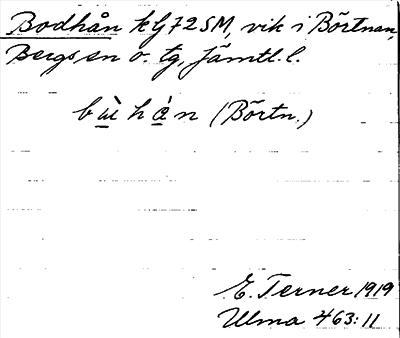 Bodhån kG72SM, vik i Börtnan,
Bergs sn o. tg, Jämtl. l.
bùhǻn (Börtn.)
E. Terner 1919
Ulma 463:11